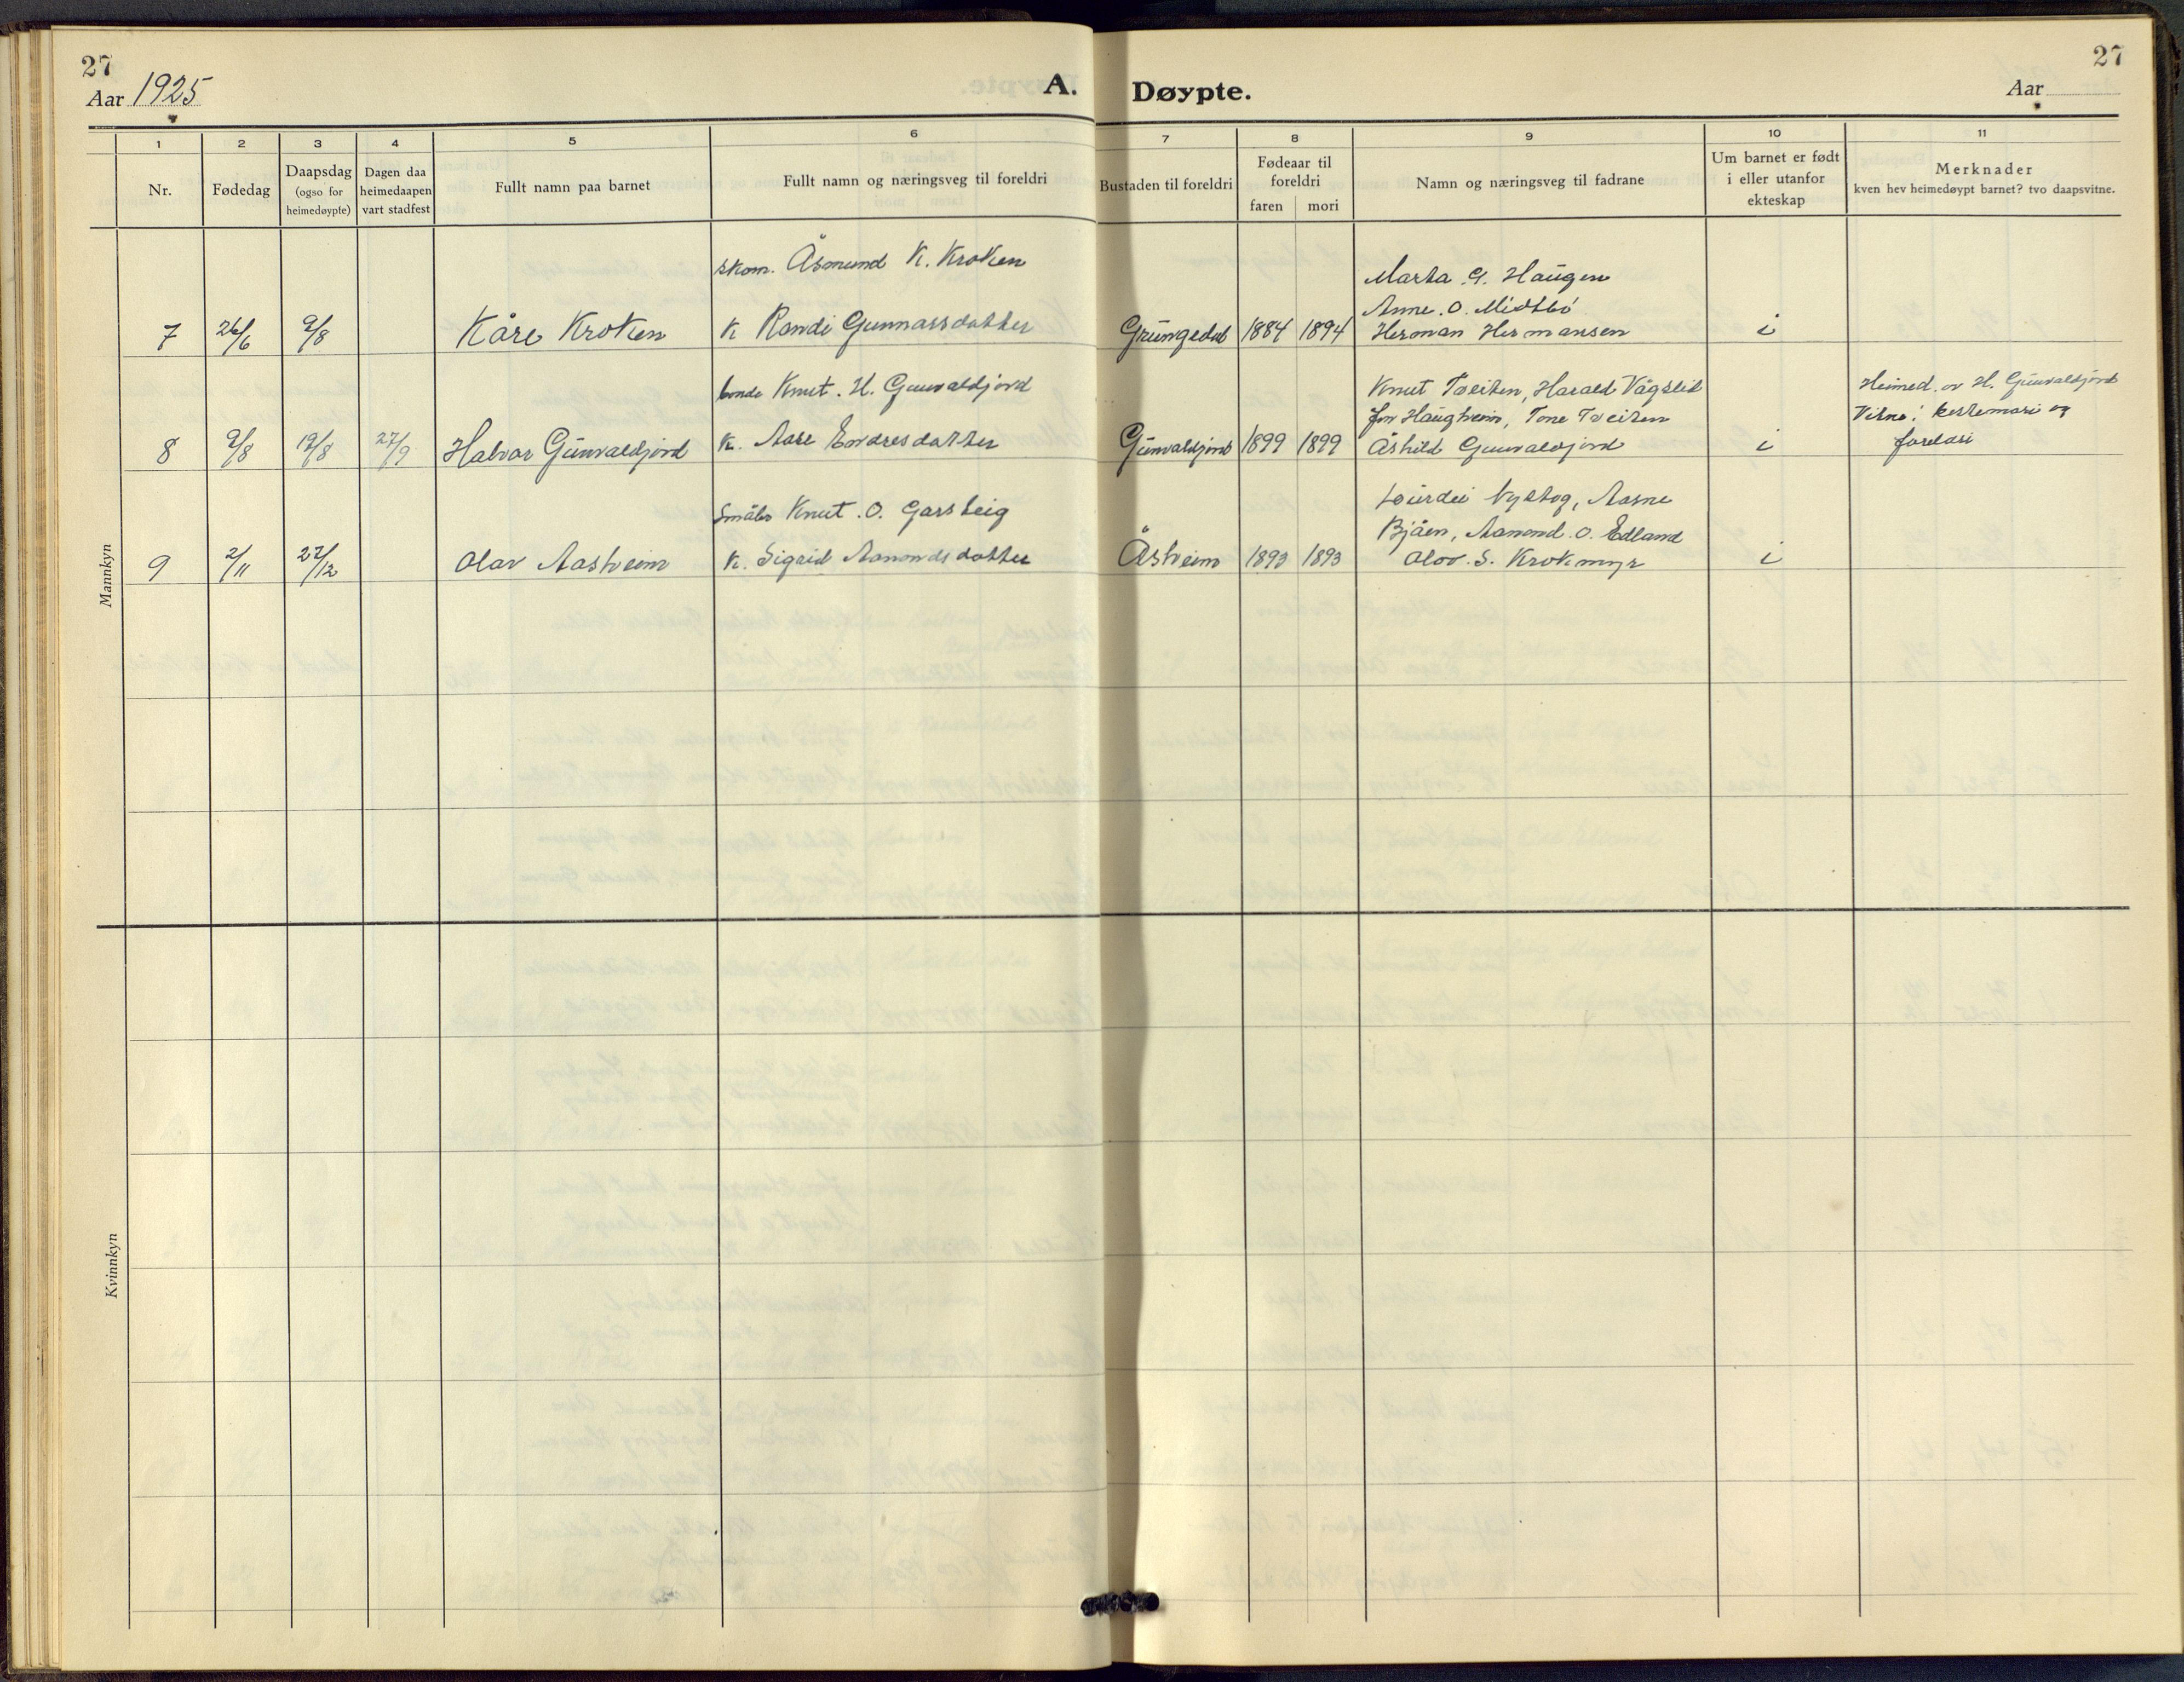 27
Aar 1925
A. Døypte.
27
Aar
1 2 3 4 5 6 7 8 9 10 11
Nr.
Fødedag
Daapsdag
(ogso for
heimedøypte)
Dagen daa
heimedaapen
vart stadfest
Fullt namn paa barnet
Fullt namn og næringsveg til foreldri
Bustaden til foreldri
Fødeaar til
foreldri
faren mori
Namn og næringsveg til fadrane
Um barnet er født
i eller utanfor
ekteskap
Merknader
kven hev heimedøypt barnet? tvo daapsvitne.
Mannkyn
skom. Åsmund K. Kroken
Marta G. Haugen
Anne. O. Midtbö
7 26/6 9/8 Kåre Kroken K Randi Gunnarsdotter Grungedal 1884 1894 Herman Hermansen i
bonde Knut. H. Gunvaldjord
Knut Tveiten, Harald Vågslid
Heimed. av H. Gunvaldjord
Jon Haugheim, Tone Tveiten
Vitne: kertemori og
8 9/8 19/8 27/9 Halvor Gunvaldjord K. Aase Endresdotter Gunvaldjord 1899 1899 Åshild Gunvaldjord i
foreldri
Småbr Knut. O. Garsteig
bystog, Aasne
Bjåen, Aamund. O. Edland
9 2/11 27/12 Olav Aasheim K. Sigrid Aamondsdotter Åsheim 1893 1893 Olov. S. Krokmyr i
Kvinnkyn